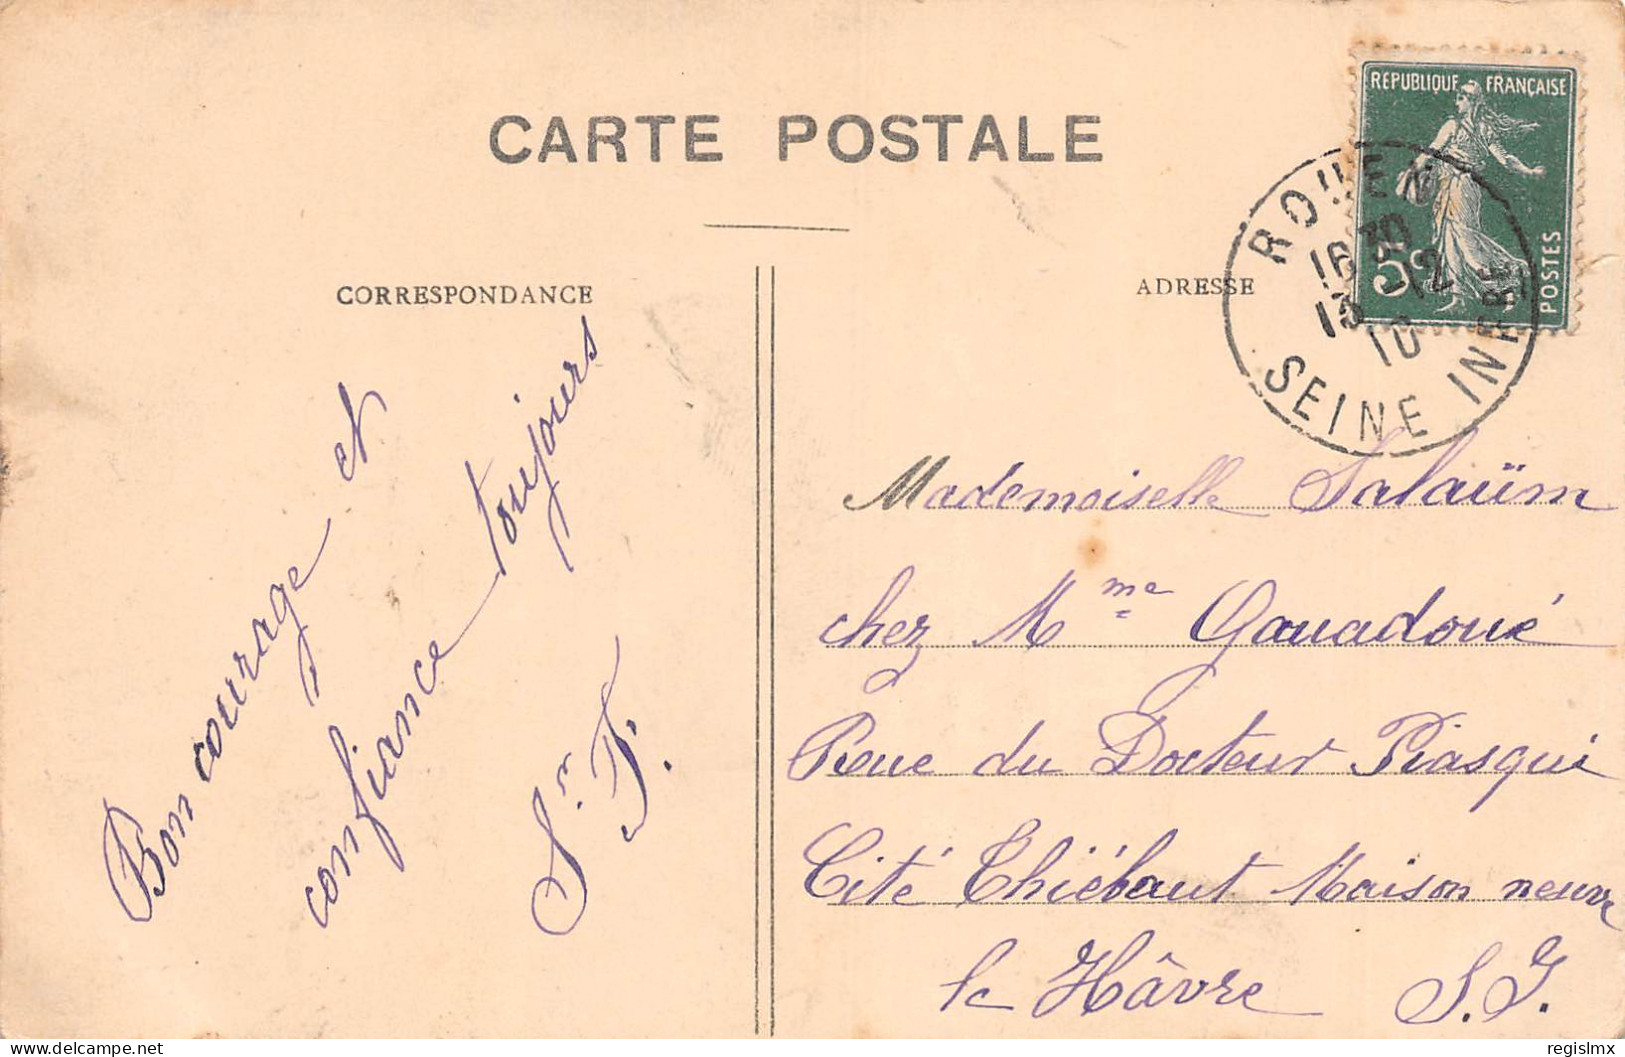 CARTE POSTALE
CORRESPONDANCE
Bon courage et
confiance toujours
Sr. F.
ADRESSE
REPUBLIQUE FRANÇAISE
5c
POSTES
ROUEN
16 30
12
10
SEINE INFRE
Mademoiselle Salaüm
chez Mme Gauadoué
Rue du Docteur Piasqui
Cité Thiébaut Maison neuve
le Hâvre S. I.
delcampe.net
regislmx